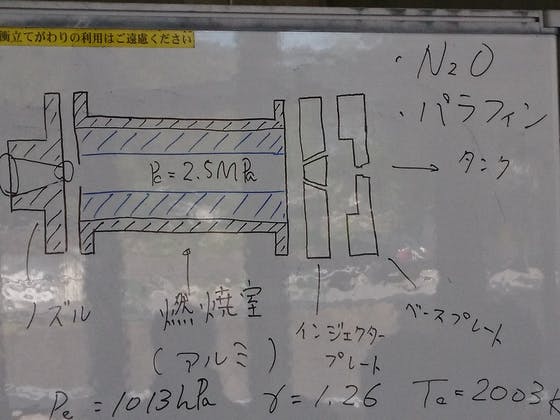 衝立てがわりの利用はご遠慮ください
・N2O
・パラフィン
Pc = 2.5MPa
→ タンク
ノズル
燃焼室
(アルミ)
インジェクター
プレート
ベースプレート
Pe = 1013hPa γ = 1.26 Tc = 2003K